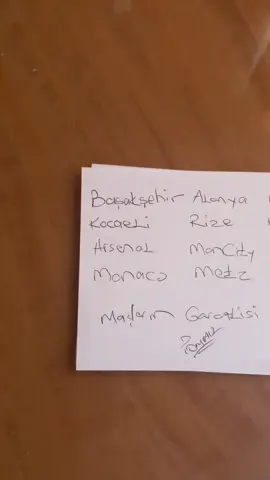 Başakşehir Alanya
Kocaeli Rize
Arsenal ManCity
Monaco Metz
Maçların Garantisi